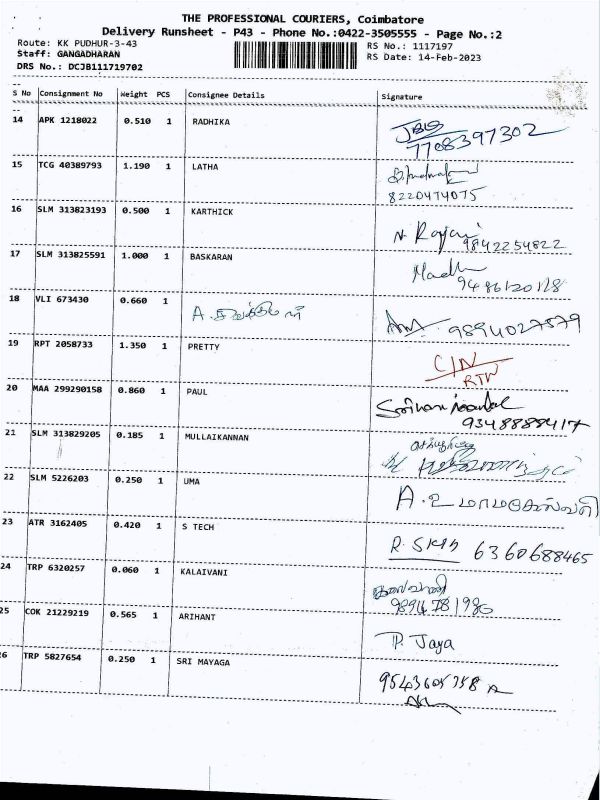 THE PROFESSIONAL COURIERS, Coimbatore
Delivery Runsheet - P43 - Phone No.:0422-3505555 - Page No.:2
Route: KK PUDHUR-3-43
RS No.: 1117197
Staff: GANGADHARAN
RS Date: 14-Feb-2023
DRS No.: DCJB111719702
S No Consignment No Weight PCS Consignee Details Signature
14 APK 1218022 0.510 1 RADHIKA
7708397302
15 TCG 40389793 1.190 1 LATHA
8220474075
16 SLM 313823193 0.500 1 KARTHICK N. Rajani
9842254822
17 SLM 313825591 1.000 1 BASKARAN Madhu
9486120118
18 VLI 673430 0.660 1 A.
9894027579
19 RPT 2058733 1.350 1 PRETTY C/N
RTN
20 MAA 299290158 0.860 1 PAUL
9348888417
21 SLM 313829205 0.185 1 MULLAIKANNAN
22 SLM 5226203 0.250 1 UMA A. உமாமகேஸ்வரி
23 ATR 3162405 0.420 1 S TECH R. 6360688465
24 TRP 6320257 0.060 1 KALAIVANI கலைவாணி
25 COK 21229219 0.565 1 ARIHANT P. Jaya
26 TRP 5827654 0.250 1 SRI MAYAGA